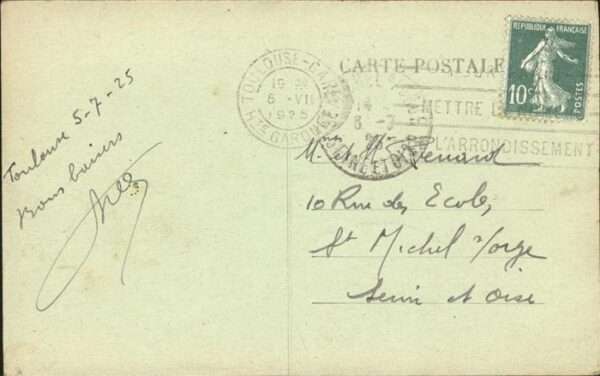 CARTE POSTALE
REPUBLIQUE FRANÇAISE
10c
POSTES
TOULOUSE-GARE
19
6 -VII
1925
HTE GARONNE
14
6-7
25
SEINE ET OISE
METTRE
L'ARRONDISSEMENT
Toulouse 5-7-25
Bons baisers
10 Rue des Ecoles
St Michel s/orge
Seine et Oise